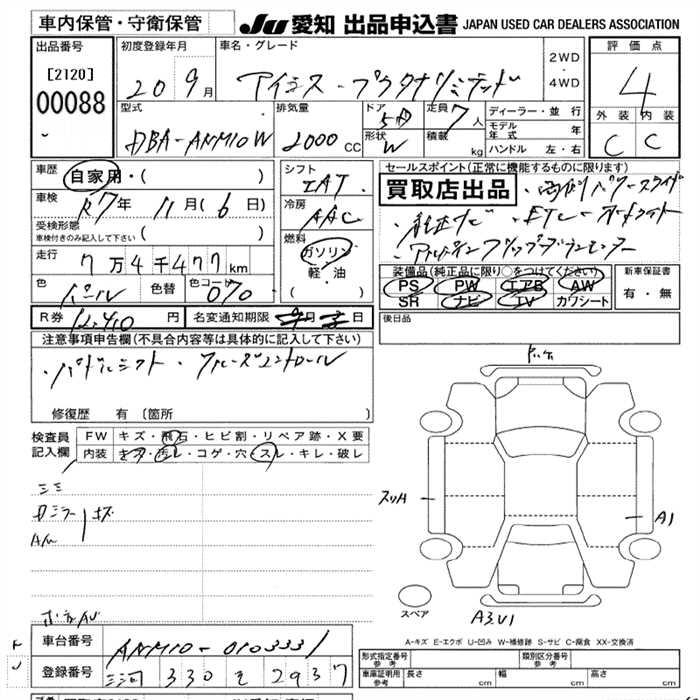 車内保管・守衛保管 JU 愛知 出品申込書 JAPAN USED CAR DEALERS ASSOCIATION
出品番号 初度登録年月 車名・グレード 2WD ・ 4WD 評価点
[2120] 20 9月 アイシス・プラタナリミテッド 4
00088 型式 排気量 ドア 定員 7人 ディーラー・並行 外装 内装
DBA-ANM10W 2000 CC 5D 形状 W 積載 kg モデル年式 年 C C
ハンドル 左・右
車歴 自家用・( ) シフト IAT セールスポイント(正常に機能するものに限ります)
車検 R7年 11月(6日) 冷房 AAC 買取店出品 ・両側パワースライド
受検形態 車検付きのみ記入して下さい ( ) ・純正ナビ ・ETC ・オートライト
走行 7万4千477km 燃料 ガソリン 軽・油
色 パール 色替 色コード 070 装備品(純正品に限り○をつけてください) 新車保証書
PS PW エアB AW 有・無
SR ナビ TV カワシート
R券 12,410 円 名変通知期限 月 日 後日品
注意事項申告欄(不具合内容等は具体的に記入して下さい)
・パドルシフト ・クルーズコントロール
修復歴 有 〔箇所 〕
検査員記入欄 FW キズ・飛石・ヒビ割・リペア跡・X要
内装 キズ・汚レ・コゲ・穴・スレ・キレ・破レ
Dミラーキズ
スリA A1
スペア A3U1
A-キズ E-エクボ U-凹み W-補修跡 S-サビ C-腐食 XX-交換済
車台番号 ANM10-0103331 形式指定番号 参考 類別区分番号 参考
登録番号 三河 330 そ 2937 車庫証明用 参考 長さ cm 幅 cm 高さ cm